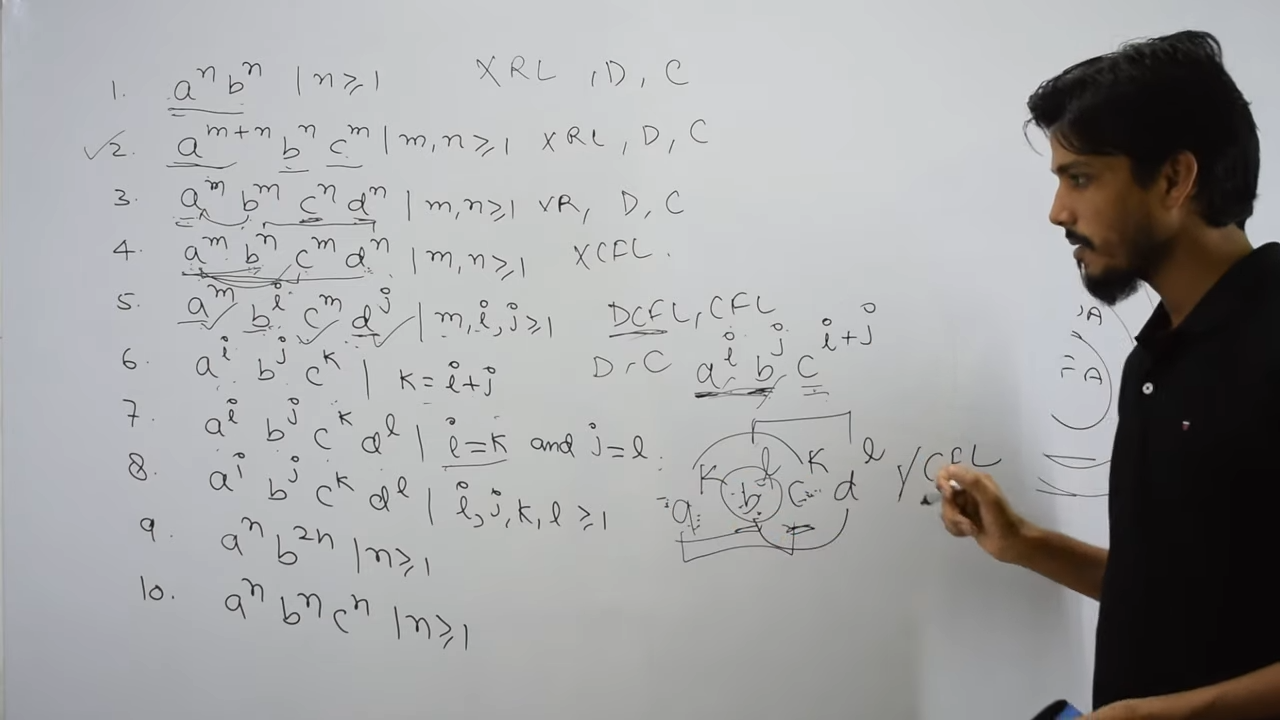 1. aⁿ bⁿ | n ≥ 1 X RL , D , C
✓2. a^{m+n} bⁿ c^m | m, n ≥ 1 X RL , D , C
3. a^m b^m cⁿ dⁿ | m, n ≥ 1 XR, D, C
4. a^m bⁿ c^m dⁿ | m, n ≥ 1 X CFL.
5. a^m b^i c^m d^j | m, i, j ≥ 1 DCFL, CFL
6. a^i b^j c^k | K = i+j D, C a^i b^j c^{i+j}
7. a^i b^j c^k d^l | i = k and j = l.
a^k b^l c^k d^l X CFL
8. a^i b^j c^k d^l | i, j, k, l ≥ 1
9. aⁿ b^{2n} | n ≥ 1
10. aⁿ bⁿ cⁿ | n ≥ 1